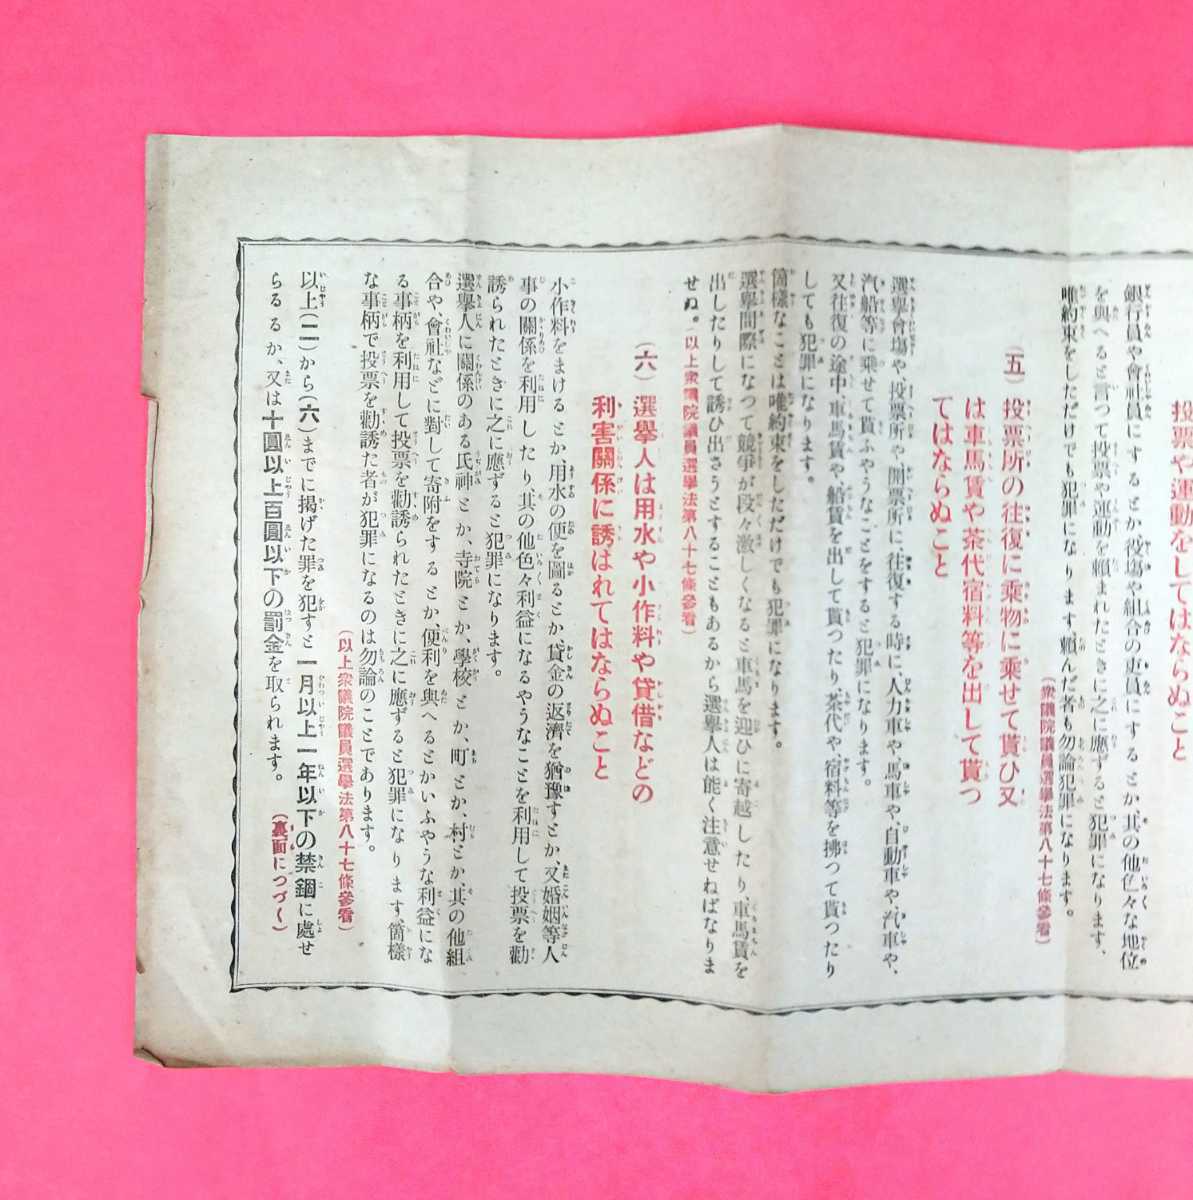 投票や運動をしてはならぬこと
銀行員や會社員にするとか、役場や組合の吏員にするとか、其の他色々な地位
を與へると言つて投票や運動を頼まれたときに之に應ずると犯罪になります、
唯約束をしただけでも犯罪になります頼んだ者も勿論犯罪になります。
(衆議院議員選擧法第八十七條參看)
(五) 投票所の往復に乘物に乘せて貰ひ又
は車馬賃や茶代宿料等を出して貰つ
てはならぬこと
選擧會場や、投票所や、開票所に、往復する時に、人力車や、馬車や、自動車や、汽車や、
汽船等に乘せて貰ふやうなことをすると犯罪になります。
又往復の途中、車馬賃や、船賃を出して貰つたり、茶代や、宿料等を拂つて貰つたり
しても犯罪になります。
箇樣なことは唯約束をしただけでも犯罪になります。
選擧間際になつて競爭が段々激しくなると車馬を迎ひに寄越したり、車馬賃を
出したりして誘ひ出さうとすることもあるから選擧人は能く注意せねばなりま
せぬ。(以上衆議院議員選擧法第八十七條參看)
(六) 選擧人は用水や小作料や貸借などの
利害關係に誘はれてはならぬこと
小作料をまけるとか、用水の便を圖るとか、貸金の返濟を猶豫すとか、又婚姻等人
事の關係を利用したり、其の他色々利益になるやうなことを利用して投票を勸
誘られたときに之に應ずると犯罪になります。
選擧人に關係のある氏神とか、寺院とか、學校とか、町とか、村とか、其の他組
合や、會社などに對して寄附をするとか、便利を與へるとかいふやうな利益にな
る事柄を利用して投票を勸誘られたときに之に應ずると犯罪になります、箇樣
な事柄で投票を勸誘た者が犯罪になるのは勿論のことであります。
(以上衆議院議員選擧法第八十七條參看)
以上(二)から(六)までに揭げた罪を犯すと一月以上一年以下の禁錮に處せ
らるるか、又は十圓以上百圓以下の罰金を取られます。 (裏面につづく)